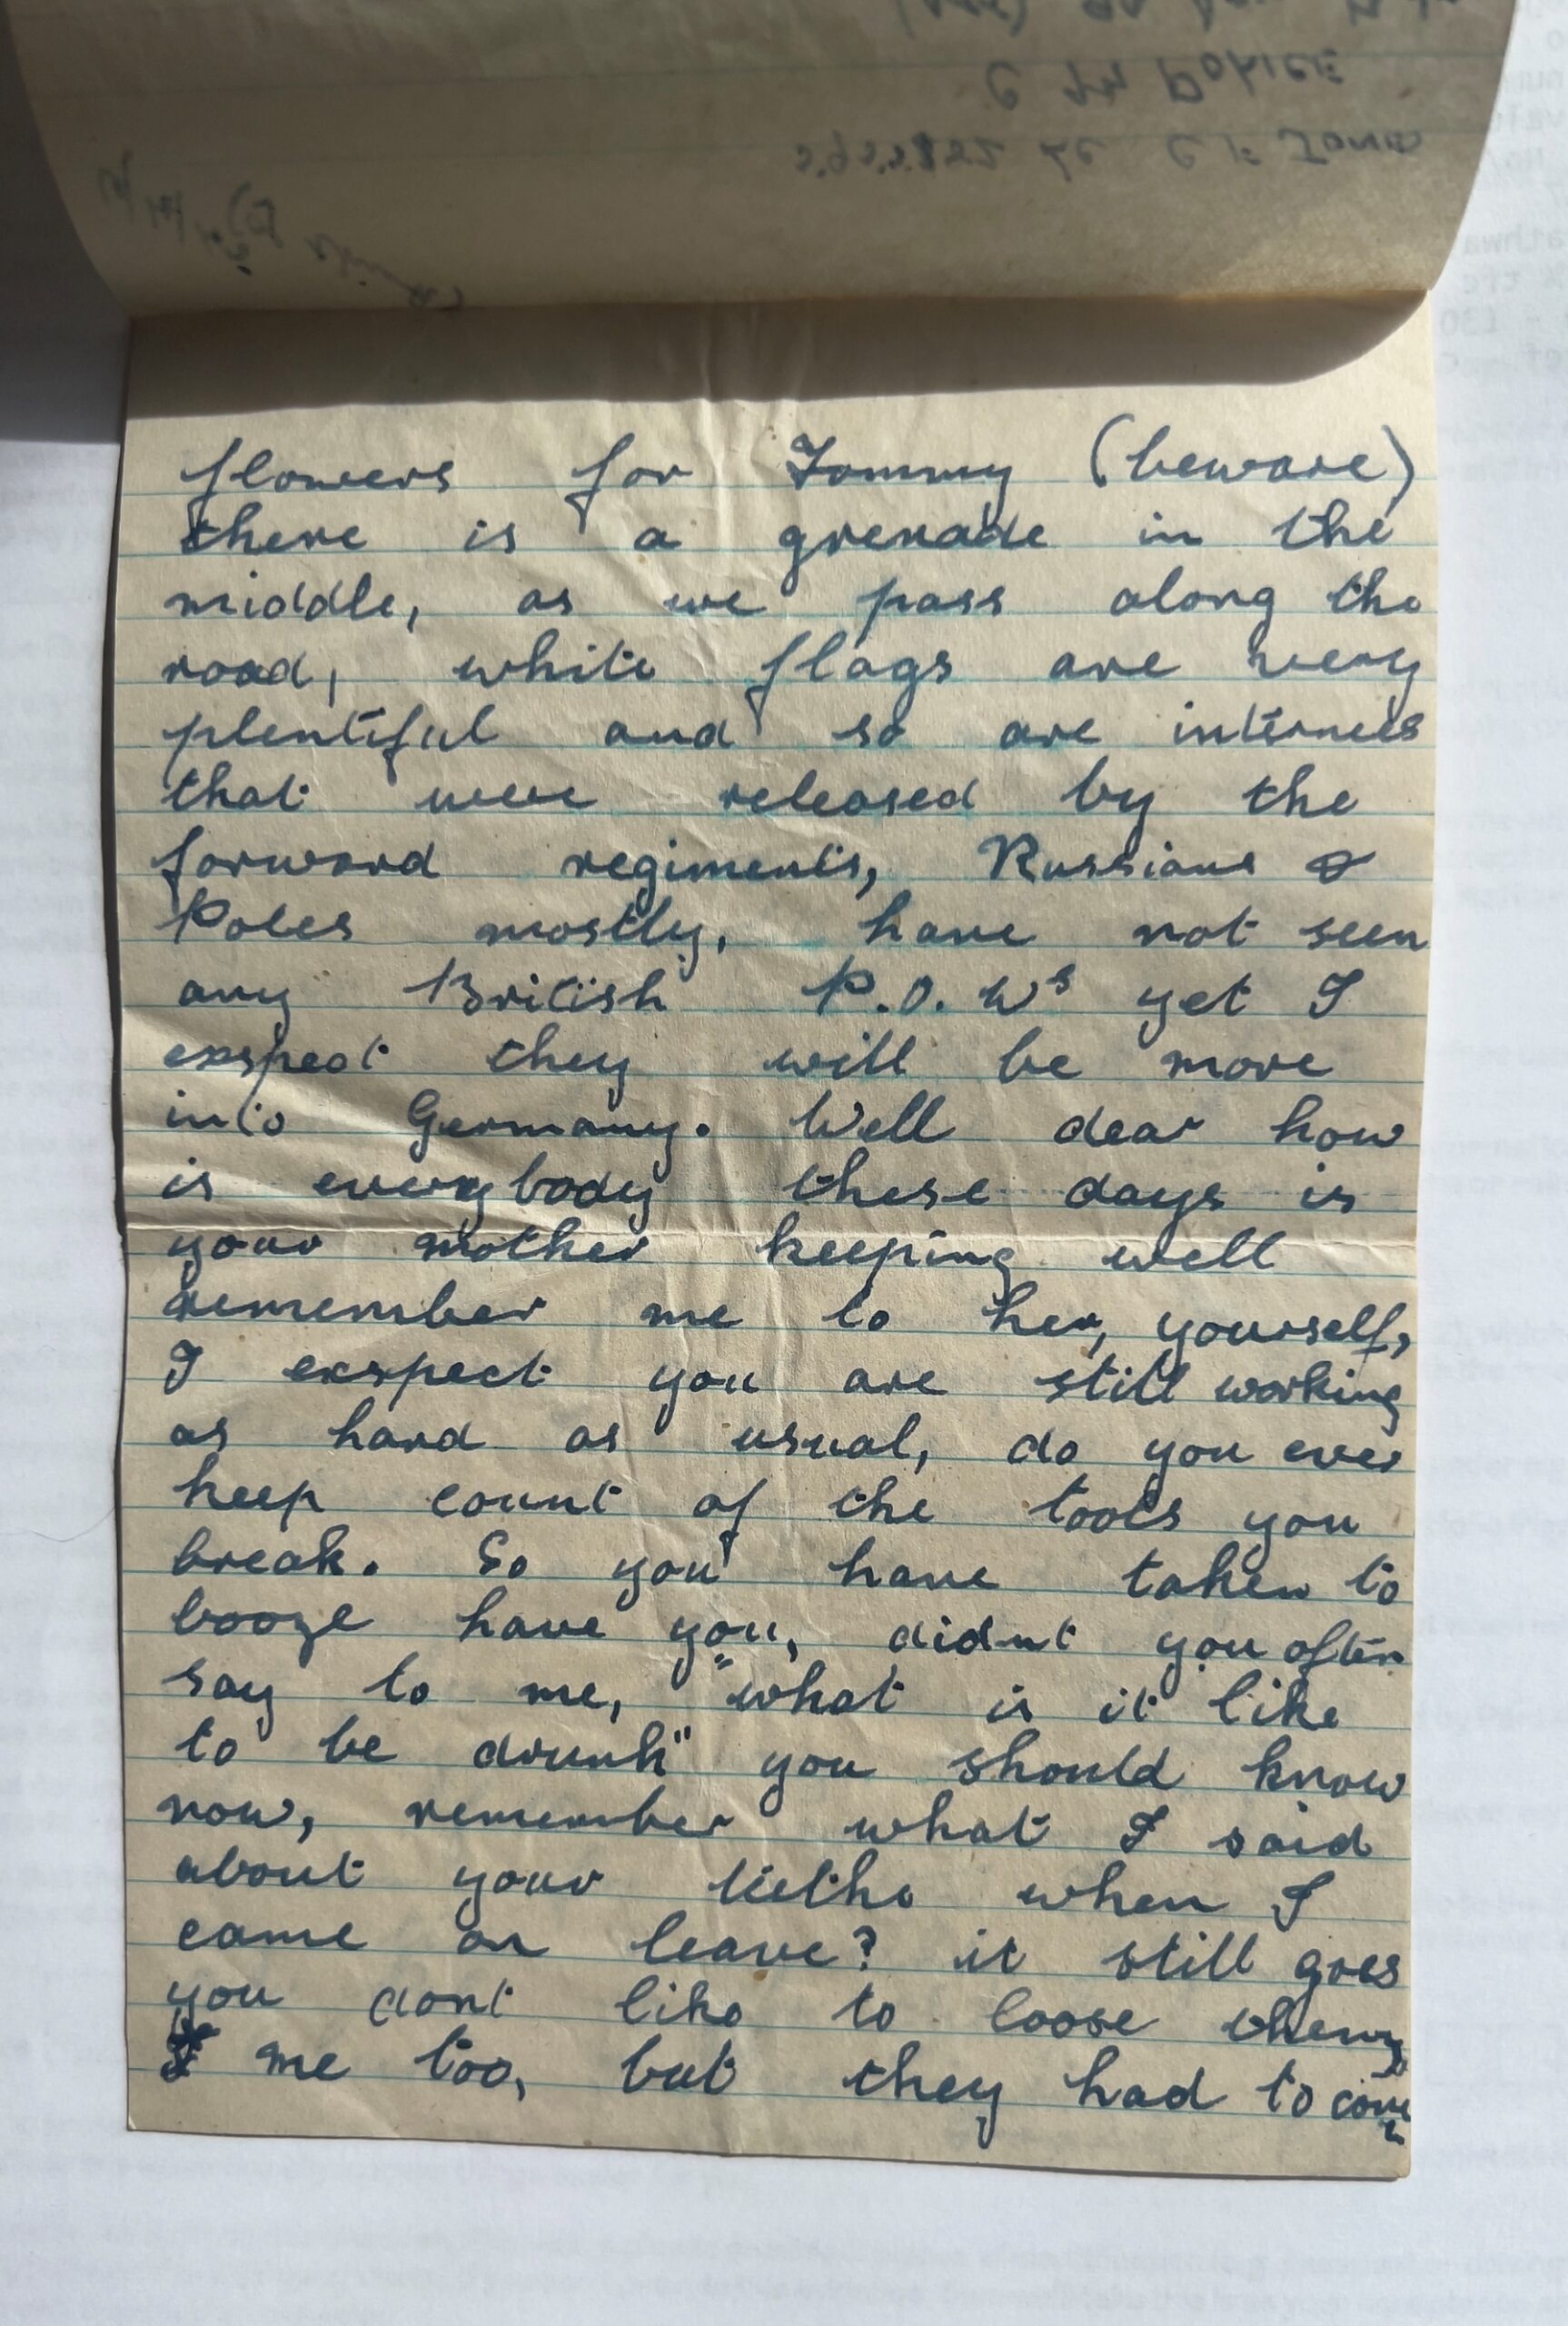 flowers for Tommy (beware)
there is a grenade in the
middle, as we pass along the
road, white flags are very
plentiful and so are internees
that were released by the
forward regiments, Russians &
Poles mostly, have not seen
any British P.O.Ws yet I
exspect they will be more
into Germany. Well dear how
is everybody these days is
your mother keeping well
remember me to her, yourself,
I exspect you are still working
as hard as usual, do you ever
keep count of the tools you
break. So you have taken to
booze have you, didnt you often
say to me, "what is it like
to be drunk" you should know
now, remember what I said
about your teeth when I
came on leave? it still goes
you dont like to loose them,
me too, but they had to come